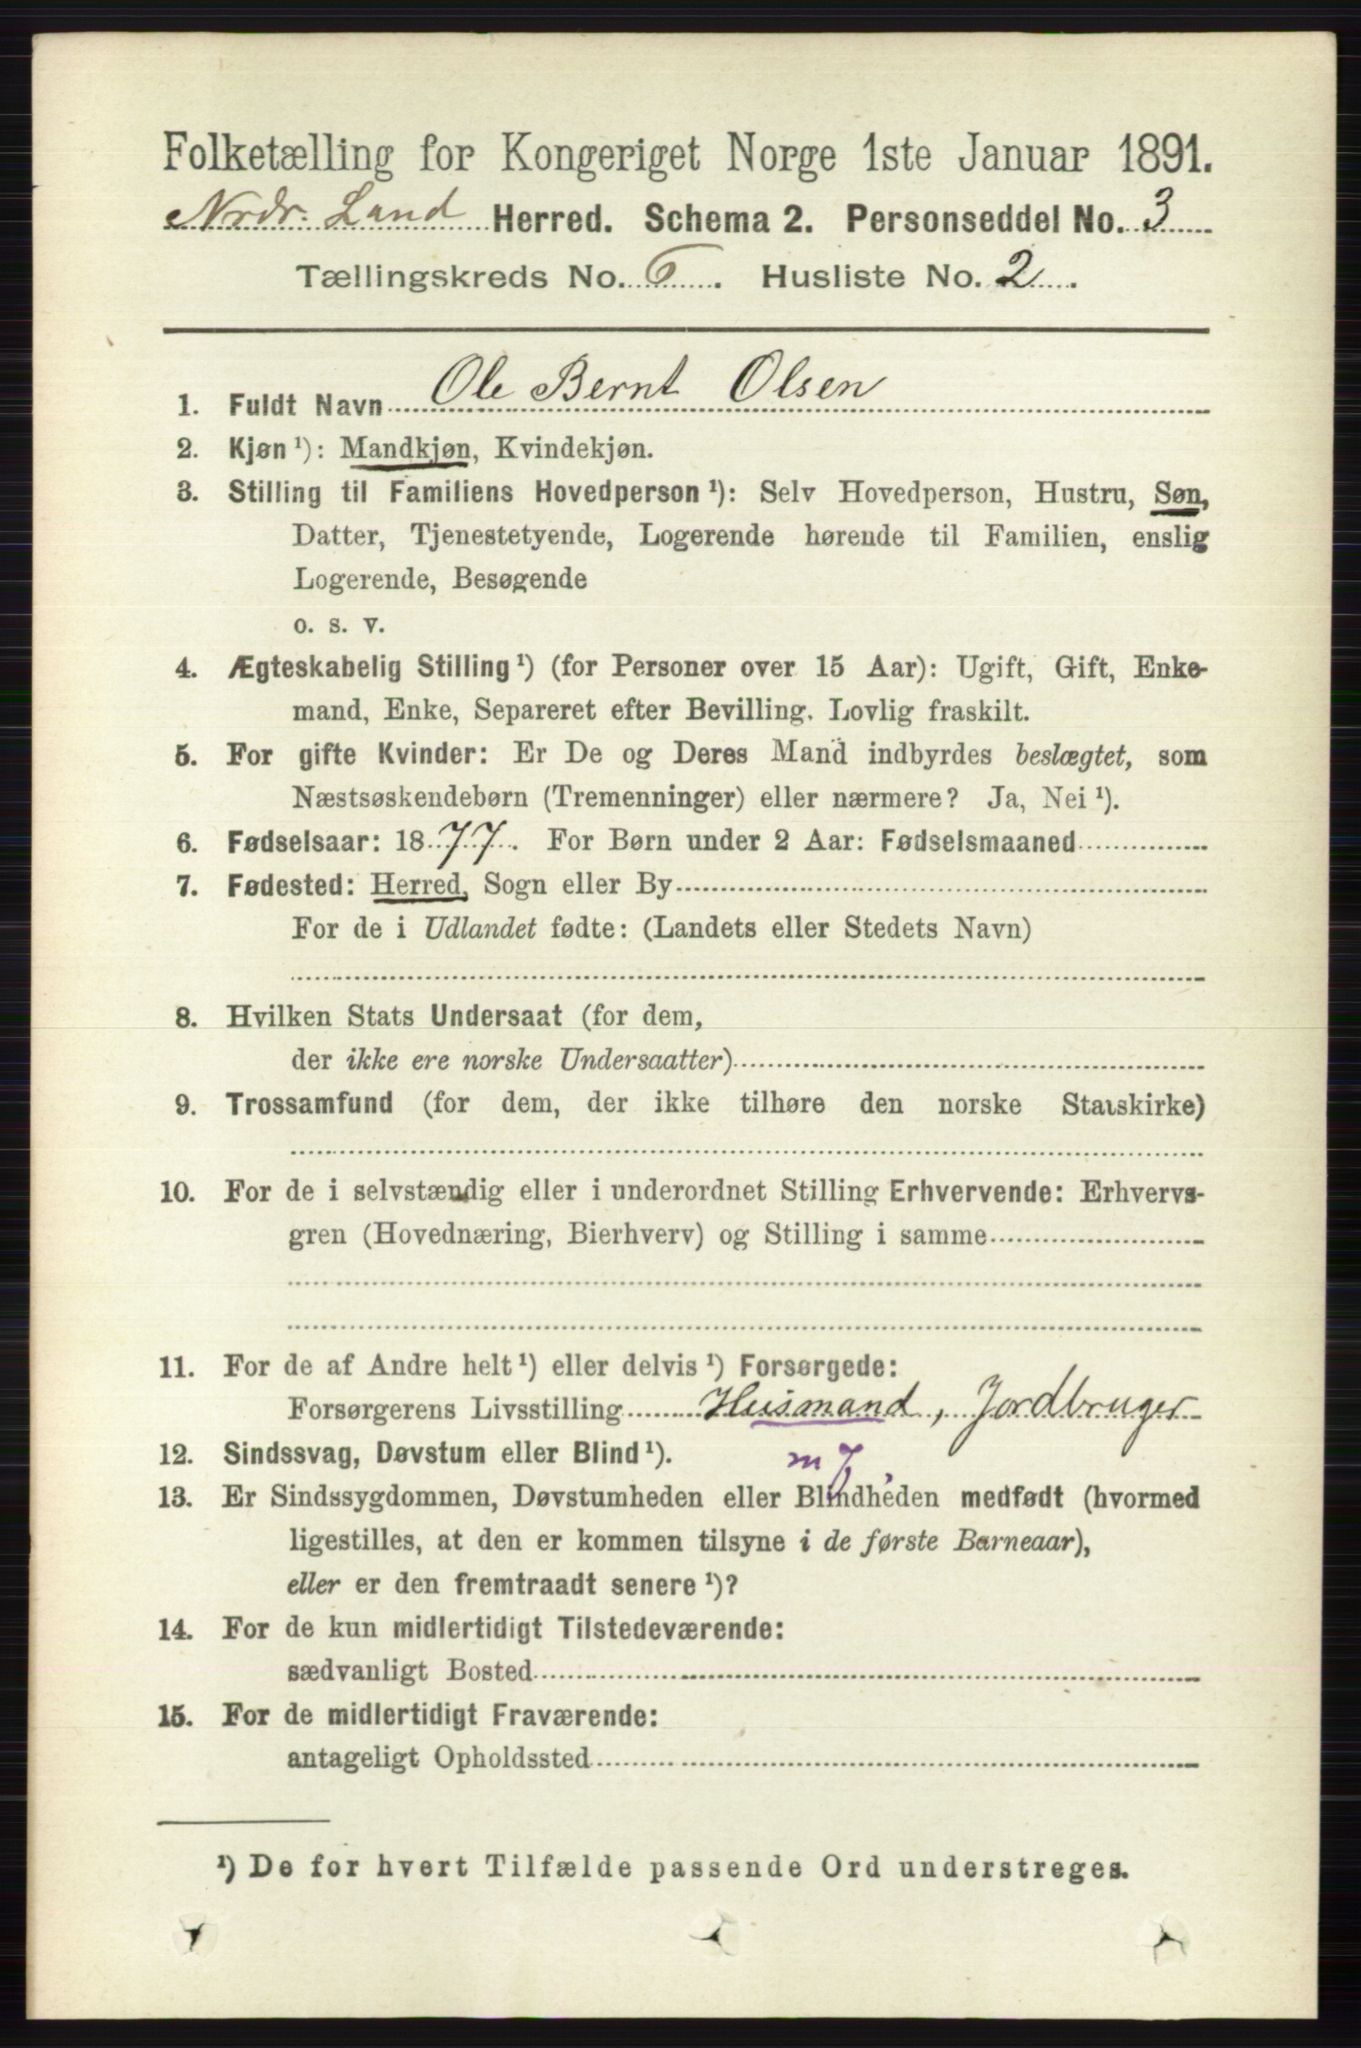 Folketælling for Kongeriget Norge 1ste Januar 1891.
Nrdr. Land Herred. Schema 2. Personseddel No. 3
Tællingskreds No. 6. Husliste No. 2.
1. Fuldt Navn Ole Bernt Olsen
2. Kjøn¹): Mandkjøn, Kvindekjøn.
3. Stilling til Familiens Hovedperson¹): Selv Hovedperson, Hustru, Søn,
Datter, Tjenestetyende, Logerende hørende til Familien, enslig
Logerende, Besøgende
o. s. v.
4. Ægteskabelig Stilling¹) (for Personer over 15 Aar): Ugift, Gift, Enke-
mand, Enke, Separeret efter Bevilling. Lovlig fraskilt.
5. For gifte Kvinder: Er De og Deres Mand indbyrdes beslægtet, som
Næstsøskendebørn (Tremenninger) eller nærmere? Ja, Nei¹).
6. Fødselsaar: 1877. For Børn under 2 Aar: Fødselsmaaned
7. Fødested: Herred, Sogn eller By
For de i Udlandet fødte: (Landets eller Stedets Navn)
8. Hvilken Stats Undersaat (for dem,
der ikke ere norske Undersaatter)
9. Trossamfund (for dem, der ikke tilhøre den norske Statskirke)
10. For de i selvstændig eller i underordnet Stilling Erhvervende: Erhvervs-
gren (Hovednæring, Bierhverv) og Stilling i samme
11. For de af Andre helt¹) eller delvis¹) Forsørgede:
Forsørgerens Livsstilling Husmand, Jordbruger
12. Sindssvag, Døvstum eller Blind¹). m J
13. Er Sindssygdommen, Døvstumheden eller Blindheden medfødt (hvormed
ligestilles, at den er kommen tilsyne i de første Barneaar),
eller er den fremtraadt senere¹)?
14. For de kun midlertidigt Tilstedeværende:
sædvanligt Bosted
15. For de midlertidigt Fraværende:
antageligt Opholdssted
¹) De for hvert Tilfælde passende Ord understreges.